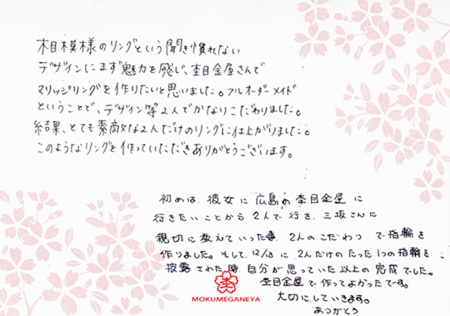 木目模様のリングという聞き慣れない
デザインにまず魅力を感じ、杢目金屋さんで
マリッジリングを作りたいと思いました。フルオーダーメイド
ということで、デザイン等2人でかなりこだわりました。
結果、とても素敵な2人だけのリングに仕上がりました。
このようなリングを作っていただきありがとうございます。
初めは、彼女に広島の杢目金屋に
行きたいことから2人で行き、三坂さんに
親切に教えていった後、2人のこだわりで指輪を
作りました。そして、12/13に、2人だけのたった1つの指輪を
披露された時、自分が思っていた以上の完成でした。
杢目金屋で作ってよかったです。
大切にしていきます。
ありがとう
MOKUMEGANEYA